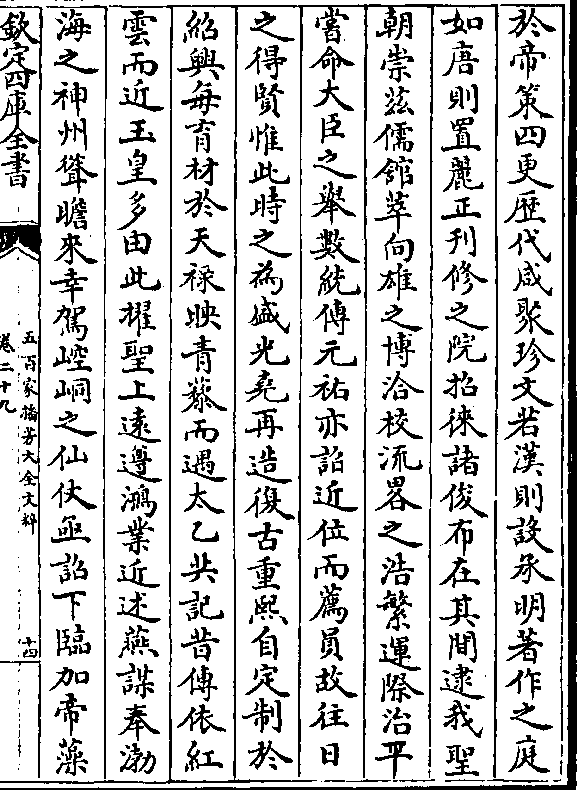 於帝策四更歴代咸聚珍文若漢則設承明著作之庭
如唐則置麗正刊修之院招徠諸俊布在其間逮我聖
朝崇兹儒館萃向雄之博洽校流畧之浩繁運際治平
嘗命大臣之舉數統傳元祐亦詔近位而薦員故往日
之得賢惟此時之為盛光堯再造復古重熙自定制於
紹興每育材於天禄映青藜而遇太乙共記昔傳依紅
雲而近玉皇多由此擢聖上遠遵鴻業近述燕謀奉渤
海之神州聳瞻來幸駕崆峒之仙仗亟詔下臨加帝藻
欽定四庫全書
五百家播芳大全文粹
卷二十九
十四